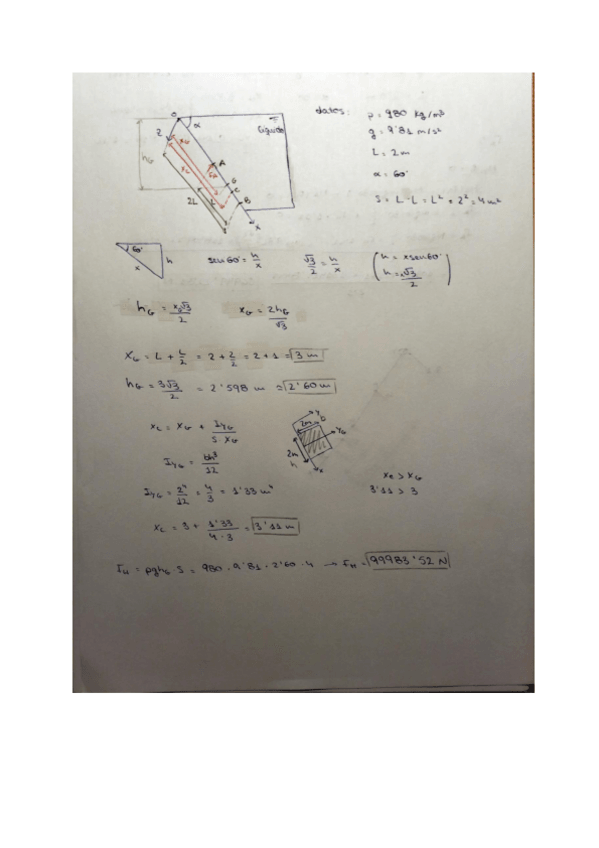 datos: ρ = 980 kg/m³
g = 9'81 m/s²
L = 2m
α = 60°
S = L · L = L² = 2² = 4 m²
O
α
Z
x_G
líquido
h_G
x_L
A
G
C
2L
L
B
x
60°
h
x
sen60° = h/x
√3/2 = h/x
(h = x sen60°
h = x√3/2)
h_G = x_G√3/2
x_G = 2h_G/√3
x_G = L + L/2 = 2 + 2/2 = 2 + 1 = 3 m
h_G = 3√3/2 = 2'598 m = 2'60 m
x_L = x_G + I_yG/(S · x_G)
I_yG = bh³/12
y
2m
b
y_G
2m
h
x
x_c > x_G
I_yG = 2⁴/12 = 4/3 = 1'33 m⁴
3'11 > 3
x_L = 3 + 1'33/(4 · 3) = 3'11 m
F_H = ρgh_G S = 980 · 9'81 · 2'60 · 4 → F_H = 99983'52 N